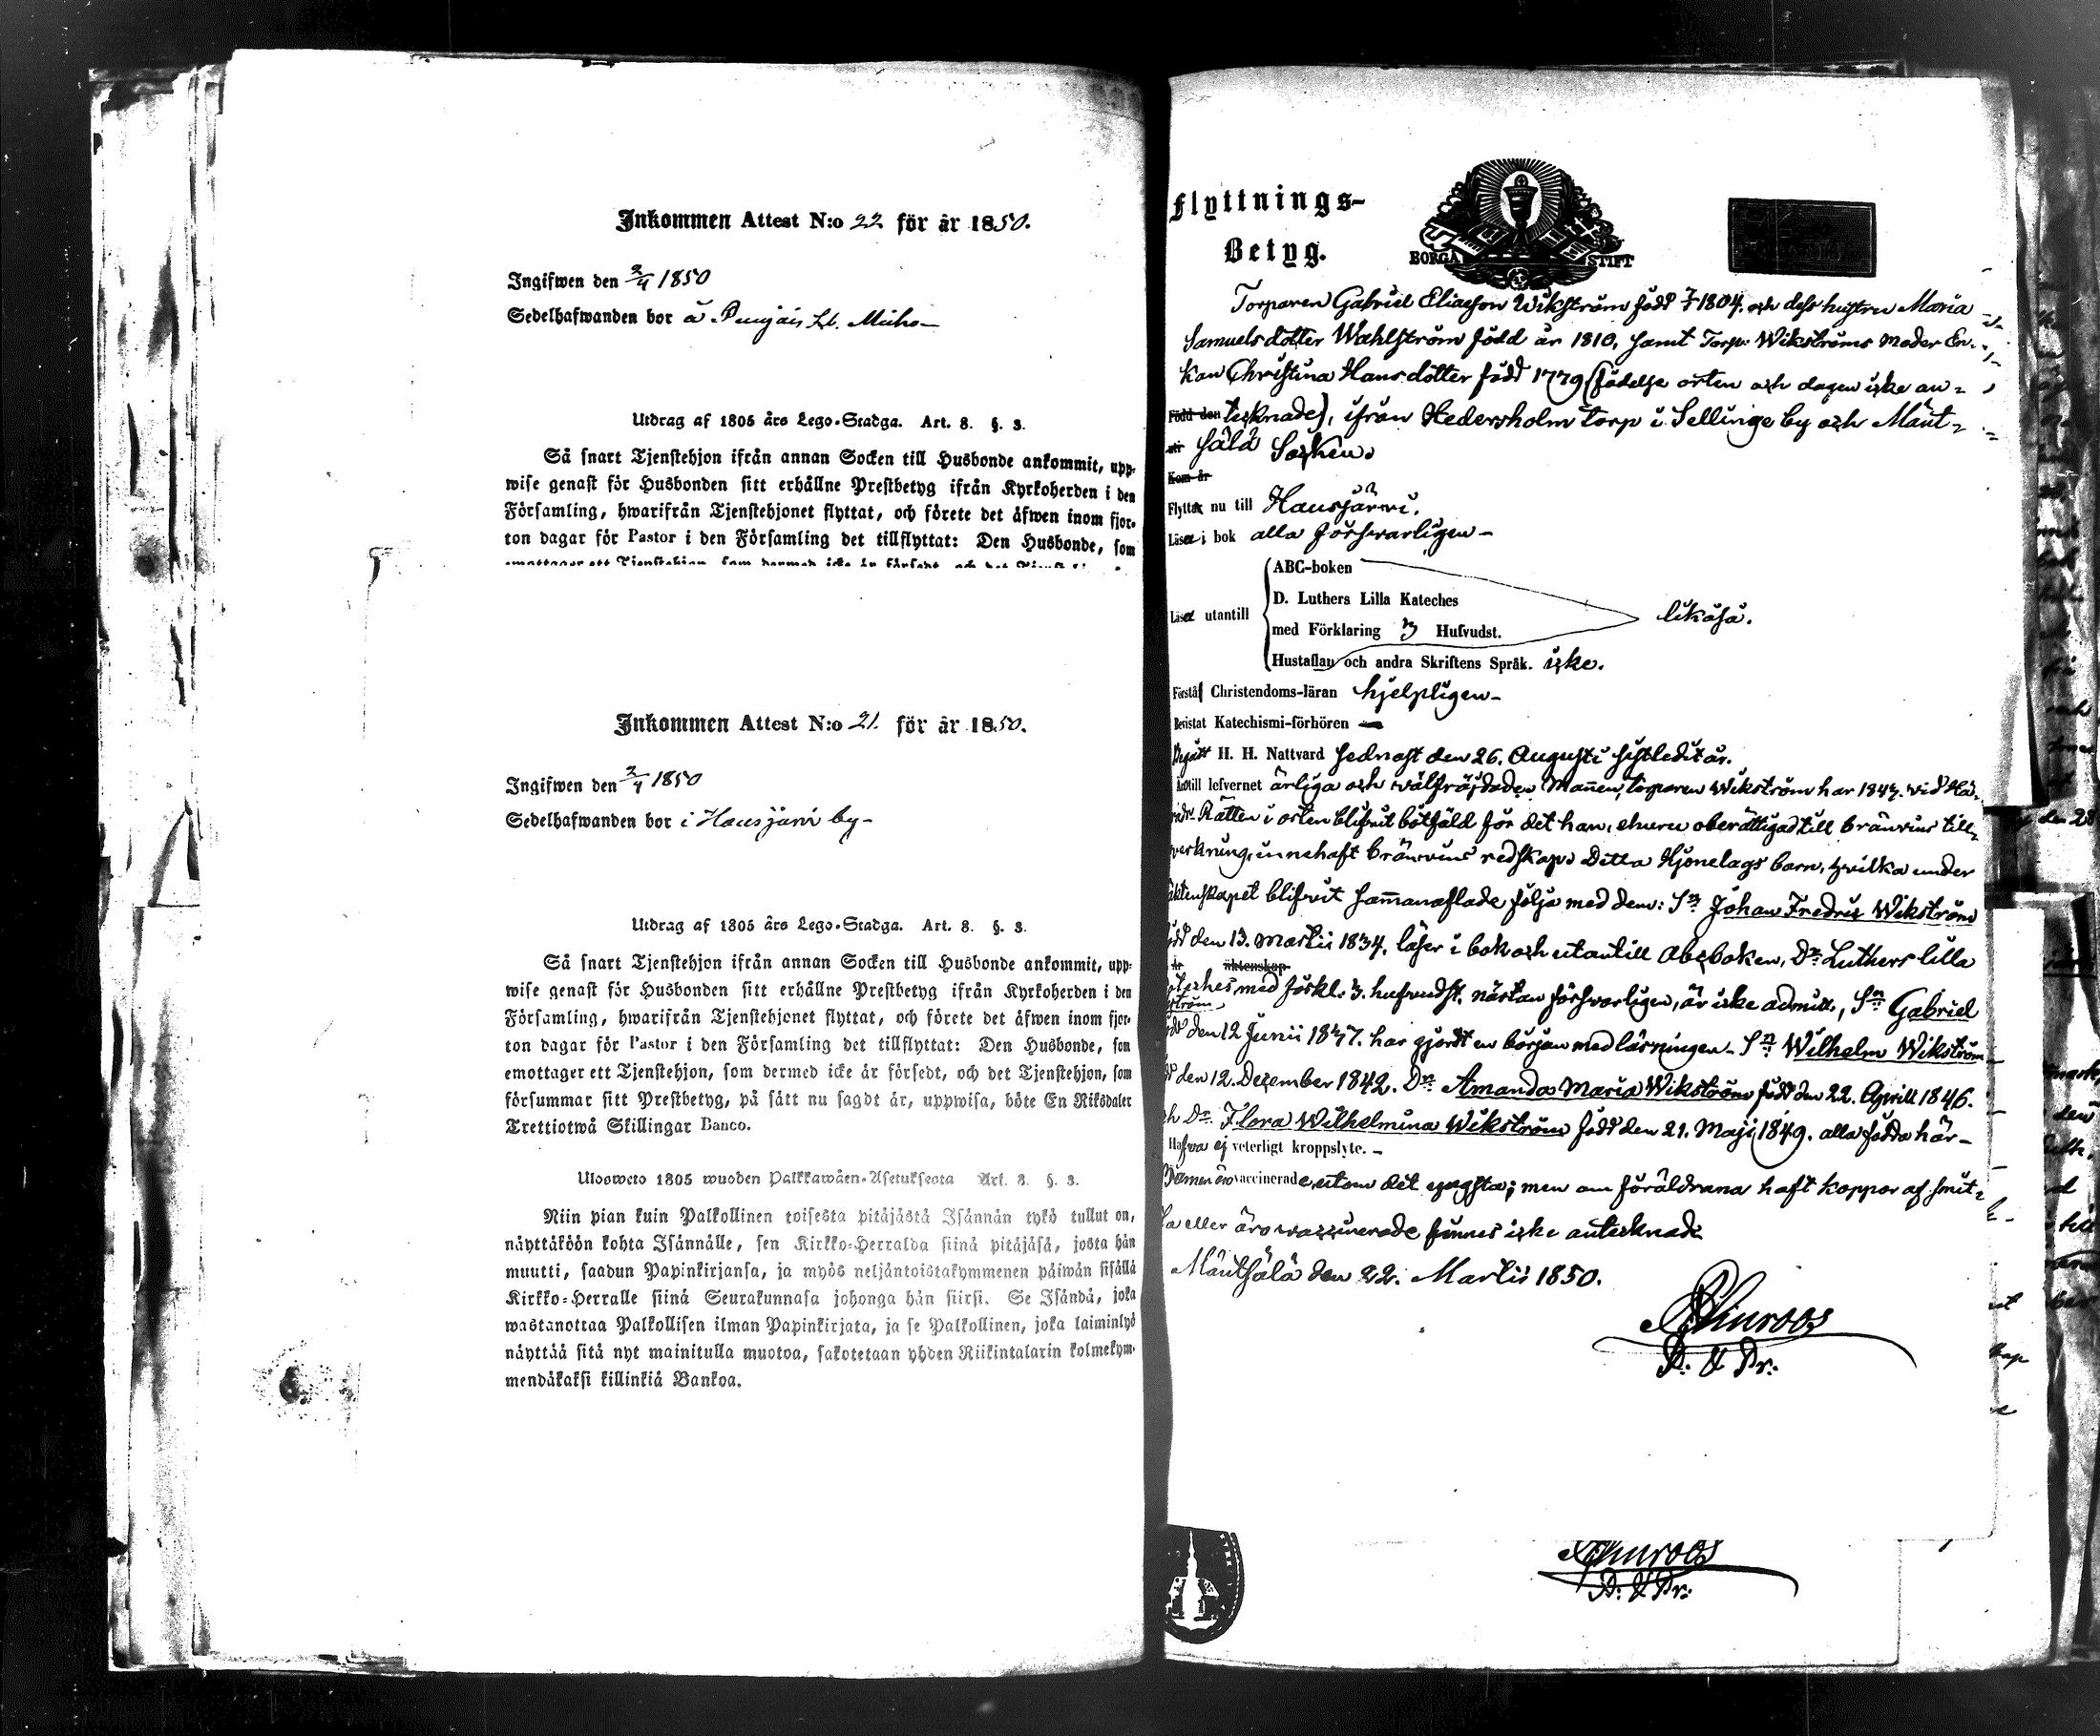 Inkommen Attest N:o 22 för år 1850.
Ingifwen den 2/4 1850
Sedelhafwanden bor å
Utdrag af 1805 års Lego-Stadga. Art. 8. §. 3.
Så snart Tjenstehjon ifrån annan Socken till Husbonde ankommit, upp-
wise genast för Husbonden sitt erhållne Prestbetyg ifrån Kyrkoherden i den
Församling, hwarifrån Tjenstehjonet flyttat, och förete det äfwen inom fjor-
ton dagar för Pastor i den Församling det tillflyttat: Den Husbonde, som
emottager ett Tjenstehjon, som dermed icke är försedt, och det
Inkommen Attest N:o 21. för år 1850.
Ingifwen den 2/4 1850
Sedelhafwanden bor i Hausjärvi by-
Utdrag af 1805 års Lego-Stadga. Art. 8. §. 3.
Så snart Tjenstehjon ifrån annan Socken till Husbonde ankommit, upp-
wise genast för Husbonden sitt erhållne Prestbetyg ifrån Kyrkoherden i den
Församling, hwarifrån Tjenstehjonet flyttat, och förete det äfwen inom fjor-
ton dagar för Pastor i den Församling det tillflyttat: Den Husbonde, som
emottager ett Tjenstehjon, som dermed icke är försedt, och det Tjenstehjon, som
försummar sitt Prestbetyg, på sätt nu sagdt är, uppwisa, böte En Riksdaler
Trettiotwå Skillingar Banco.
Ulosweto 1805 wuoden Palkkawäen-Asetuksesta Art. 8. §. 3.
Niin pian kuin Palkollinen toisesta pitäjästä Isännän tykö tullut on,
näyttäköön kohta Isännälle, sen Kirkko-Herralda siinä pitäjäsä, josta hän
muutti, saadun Papinkirjansa, ja myös neljäntoistakymmenen päiwän sisällä
Kirkko-Herralle siinä Seurakunnasa johonga hän siirsi. Se Isändä, joka
wastanottaa Palkollisen ilman Papinkirjata, ja se Palkollinen, joka laiminlyö
näyttää sitä nyt mainitulla muotoa, sakotetaan yhden Riikintalarin kolmekym-
mendäkaksi killinkiä Bankoa.
Flyttnings-
Betyg.
BORGÅ STIFT
Torparen Gabriel Eliaeson Wikström född 1804. och dess hustru Maria
Samuelsdotter Wahlström född år 1810, samt Torp. Wikströms moder En-
kan Christina Hansdotter född 1779 (födelse orten och dagen icke an-
Född den tecknade), ifrån Hedersholm torp i Sellinge by och Mänt-
sälä Socken.
Kom år
Flytta nu till Hausjärvi.
Läser i bok alla försvarligen-
ABC-boken
D. Luthers Lilla Kateches
Läser utantill
likaså.
med Förklaring 3 Hufvudst.
Hustaflan och andra Skriftens Språk. icke.
Förstå Christendoms-läran hjelpligen-
Bevistat Katechismi-förhören -
Begått H. H. Nattvard sednast den 26. Augusti sistledit år.
till lefvernet ärliga och välfräjdade. Mannen, torparen Wikström har 1847. vid Hä-
rads Rätten i orten blifvit botfäld för det han, ehuru oberättigad till bränvins till-
verkning, innehaft bränvins redskap. Detta Hjonelags barn, hvilka under
äktenskapet blifvit sammanaflade följa med dem: Sn Johan Fredric Wikström
född den 13. Martii 1834, läser i bok och utantill Abcboken, Dr Luthers lilla
år äktenskap
med förkl. 3. hufvudst. nästan försvarligen, är icke admitt., Sn Gabriel
ström
den 12 Junii 1837. har gjordt en början med läsningen - Sn Wilhelm Wikström
den 12. December 1842. Dr Amanda Maria Wikström född den 22. Aprill 1846.
och Dr Flora Wilhelmina Wikström född den 21. Maji 1849. alla födda här-
Hafva ej veterligt kroppslyte. -
Barnen äro vaccinerade, utom det yngsta; men om föräldrarna haft koppor af smit-
ta eller äro vaccinerade finnes icke antecknadt
Mäntsälä den 22. Martii 1850.